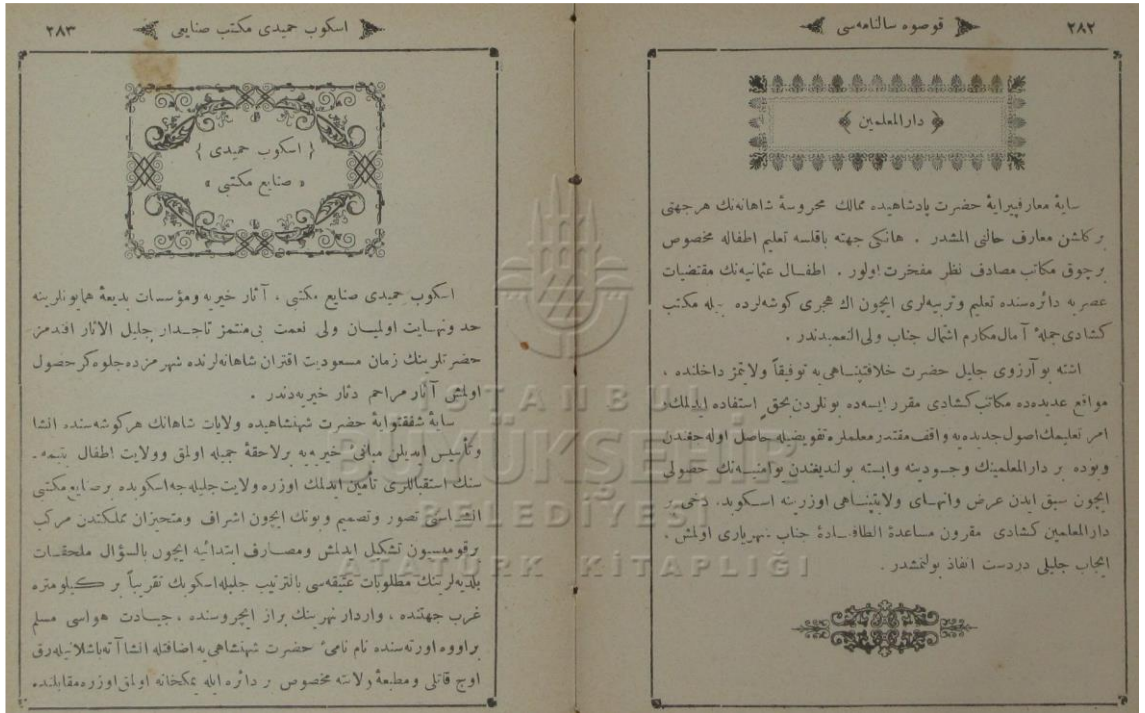 ٢٨٢
قوصوه سالنامه‌سی
دارالمعلمین
سایهٔ معارفپیرایهٔ حضرت پادشاهیده ممالك محروسهٔ شاهانه‌نك هر جهتی
بر گلشن معارف حالنی المشدر . هانكی جهته باقلسه تعلیم اطفاله مخصوص
برچوق مكاتب مصادف نظر مفخرت اولور . اطفال عثمانیه‌نك مقتضیات
عصریه دائره‌سنده تعلیم وتربیه‌لری ایچون اك هجری كوشه‌لرده بیله مكتب
كشادی جملهٔ آمال مكارم اشتمال جناب ولی النعمیدندر .
اشته بو آرزوی جلیل حضرت خلافتپناهی‌یه توفیقاً ولایتمز داخلنده ،
مواقع عدیده‌ده مكاتب كشادی مقرر ایسه‌ده بونلردن بحق استفاده ایدلمك
امر تعلیمك اصول جدیده‌یه واقف مقتدر معلملره تفویضیله حاصل اوله‌جغندن
وبوده بر دارالمعلمینك وجودینه وابسته بولندیغندن بو امنیه‌نك حصولی
ایچون سبق ایدن عرض وانهای ولایتپناهی اوزرینه اسكوبده دخی بر
دارالمعلمین كشادی مقرون مساعدهٔ الطافــادهٔ جناب شهریاری اولمش ،
ایجاب جلیلی دردست انفاذ بولنمشدر .
اسكوب حمیدی مكتب صنایعی
٢٨٣
{ اسكوب حمیدی }
« صنایع مكتبی »
اسكوب حمیدی صنایع مكتبی ، آثار خیریه ومؤسسات بدیعهٔ همایونلرینه
حد ونهایت اولمیان ولی نعمت بی‌منتمز تاجدار جلیل الآثار افندمز
حضرتلرینك زمان مسعودیت اقتران شاهانه‌لرنده شهرمزده جلوه‌كر حصول
اولمش آثار مراحم دثار خیریه‌دندر .
سایهٔ شفقتوایهٔ حضرت شهنشاهیده ولایات شاهانك هر كوشه‌سنده انشا
وتأسیس ایدیلن مبانیٔ خیریه‌یه برلاحقهٔ جمیله اولمق وولایت اطفال یتیمه‌ـ
سنك استقباللری تأمین ایدلمك اوزره ولایت جلیله‌جه اسكوبده بر صنایع مكتبی
انشاسی تصور وتصمیم وبونك ایچون اشراف ومتحیزان مملكتدن مركب
برقومسیون تشكیل ایدلمش ومصارف ابتدائیه ایچون بالسؤال ملحقات
بلدیه‌لرینك مطلوبات عتیقه‌سی بالترتیب جلیله اسكوبك تقریباً بر كیلومتره
غرب جهتنده ، واردار نهرینك براز ایچروسنده ، جیادت هواسی مسلم
براووه اورته‌سنده نام نامیٔ حضرت شهنشاهی‌یه اضافتله انشاآته باشلانیله‌رق
اوچ قاتلی ومطبعهٔ ولایته مخصوص بر دائره ایله یمكخانه اولمق اوزره مقابلنده